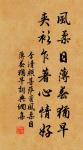 風柔日薄春猶早
夾衫乍著心情好
李清照菩薩蠻風柔日
薄春猶早詞